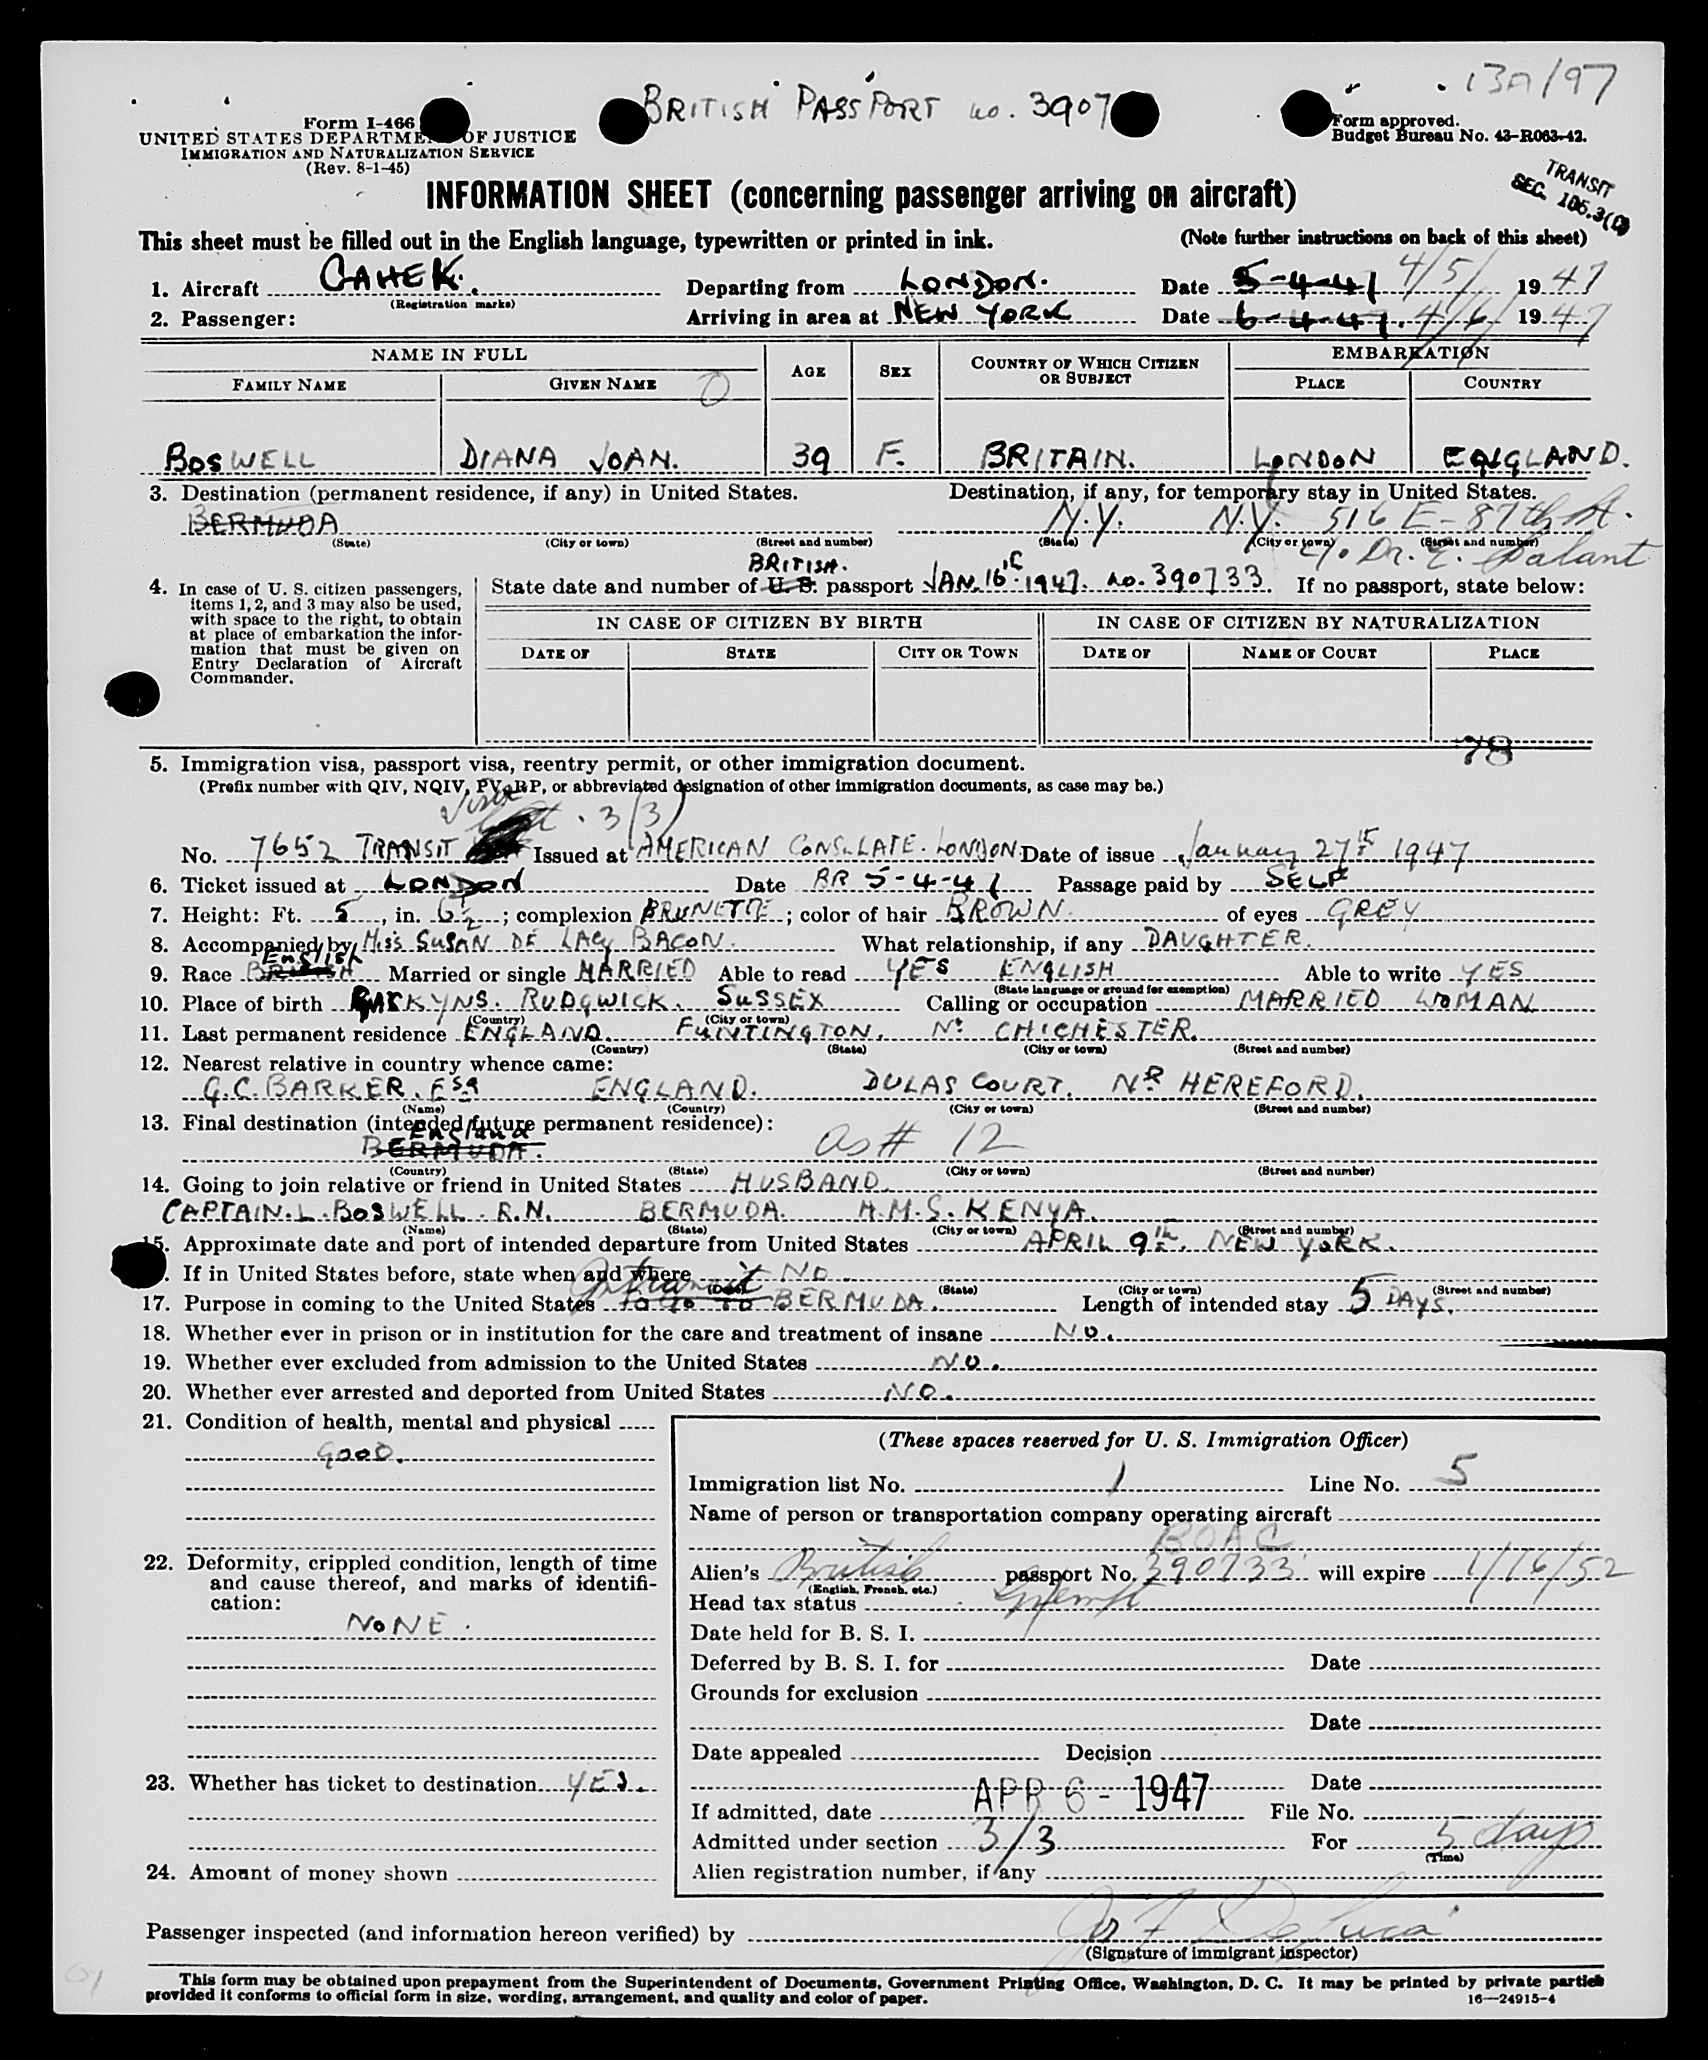 13A/97
BRITISH PASSPORT no. 3907
Form I-466
UNITED STATES DEPARTMENT OF JUSTICE
IMMIGRATION AND NATURALIZATION SERVICE
(Rev. 8-1-45)
Form approved.
Budget Bureau No. 43-R063-42.
TRANSIT
SEC. 105.3(C)
INFORMATION SHEET (concerning passenger arriving on aircraft)
This sheet must be filled out in the English language, typewritten or printed in ink. (Note further instructions on back of this sheet)
1. Aircraft GAHEK. Departing from LONDON. Date 5-4-47 4/5/ 1947
(Registration marks)
2. Passenger: Arriving in area at NEW YORK Date 6-4-47. 4/6/ 1947
NAME IN FULL AGE SEX COUNTRY OF WHICH CITIZEN OR SUBJECT EMBARKATION
FAMILY NAME GIVEN NAME O PLACE COUNTRY
BOSWELL DIANA JOAN. 39 F. BRITAIN. LONDON ENGLAND.
3. Destination (permanent residence, if any) in United States. Destination, if any, for temporary stay in United States.
BERMUDA N.Y. N.Y. 516 E-87th St.
(State) (City or town) (Street and number) (State) (City or town) (Street and number)
c/o Dr. E.
BRITISH.
4. In case of U. S. citizen passengers, items 1, 2, and 3 may also be used, with space to the right, to obtain at place of embarkation the information that must be given on Entry Declaration of Aircraft Commander.
State date and number of U. S. passport JAN. 16th 1947. no. 390733. If no passport, state below:
IN CASE OF CITIZEN BY BIRTH IN CASE OF CITIZEN BY NATURALIZATION
DATE OF STATE CITY OR TOWN DATE OF NAME OF COURT PLACE
78
5. Immigration visa, passport visa, reentry permit, or other immigration document.
(Prefix number with QIV, NQIV, PV, RP, or abbreviated designation of other immigration documents, as case may be.)
Visa 3/3)
No. 7652 TRANSIT Issued at AMERICAN CONSULATE. LONDON Date of issue January 27th 1947
6. Ticket issued at LONDON Date BR 5-4-47 Passage paid by SELF
7. Height: Ft. 5, in. 6½; complexion BRUNETTE; color of hair BROWN. of eyes GREY
8. Accompanied by Miss SUSAN DE LACY BACON. What relationship, if any DAUGHTER.
English
9. Race BRITISH Married or single MARRIED Able to read YES ENGLISH Able to write YES
(State language or ground for exemption)
10. Place of birth PARKYNS. RUDGWICK. SUSSEX Calling or occupation MARRIED WOMAN
(Country) (City or town)
11. Last permanent residence ENGLAND. FUNTINGTON. Nr CHICHESTER.
(Country) (State) (City or town) (Street and number)
12. Nearest relative in country whence came:
G.C. BARKER. Esq ENGLAND. DULAS COURT. NR HEREFORD.
(Name) (Country) (City or town) (Street and number)
13. Final destination (intended future permanent residence):
England
BERMUDA. as # 12
(Country) (State) (City or town) (Street and number)
14. Going to join relative or friend in United States HUSBAND.
CAPTAIN. L. BOSWELL. R.N. BERMUDA. H.M.S. KENYA.
(Name) (State) (City or town) (Street and number)
15. Approximate date and port of intended departure from United States APRIL 9th. NEW YORK.
. If in United States before, state when and where NO.
(Date) (State) (City or town) (Street and number)
In transit
17. Purpose in coming to the United States to go to BERMUDA. Length of intended stay 5 DAYS.
18. Whether ever in prison or in institution for the care and treatment of insane NO.
19. Whether ever excluded from admission to the United States NO.
20. Whether ever arrested and deported from United States NO.
21. Condition of health, mental and physical
GOOD.
22. Deformity, crippled condition, length of time and cause thereof, and marks of identification:
NONE.
23. Whether has ticket to destination YES.
24. Amount of money shown
(These spaces reserved for U. S. Immigration Officer)
Immigration list No. 1 Line No. 5
Name of person or transportation company operating aircraft
BOAC
Alien's British passport No. 390733 will expire 1/16/52
(English, French, etc.)
Head tax status Exempt
Date held for B. S. I.
Deferred by B. S. I. for Date
Grounds for exclusion
Date
Date appealed Decision
Date
If admitted, date APR 6 - 1947 File No.
Admitted under section 3/3 For 5 days
(Time)
Alien registration number, if any
Passenger inspected (and information hereon verified) by
(Signature of immigrant inspector)
This form may be obtained upon prepayment from the Superintendent of Documents, Government Printing Office, Washington, D. C. It may be printed by private parties
provided it conforms to official form in size, wording, arrangement, and quality and color of paper. 16—24915-4